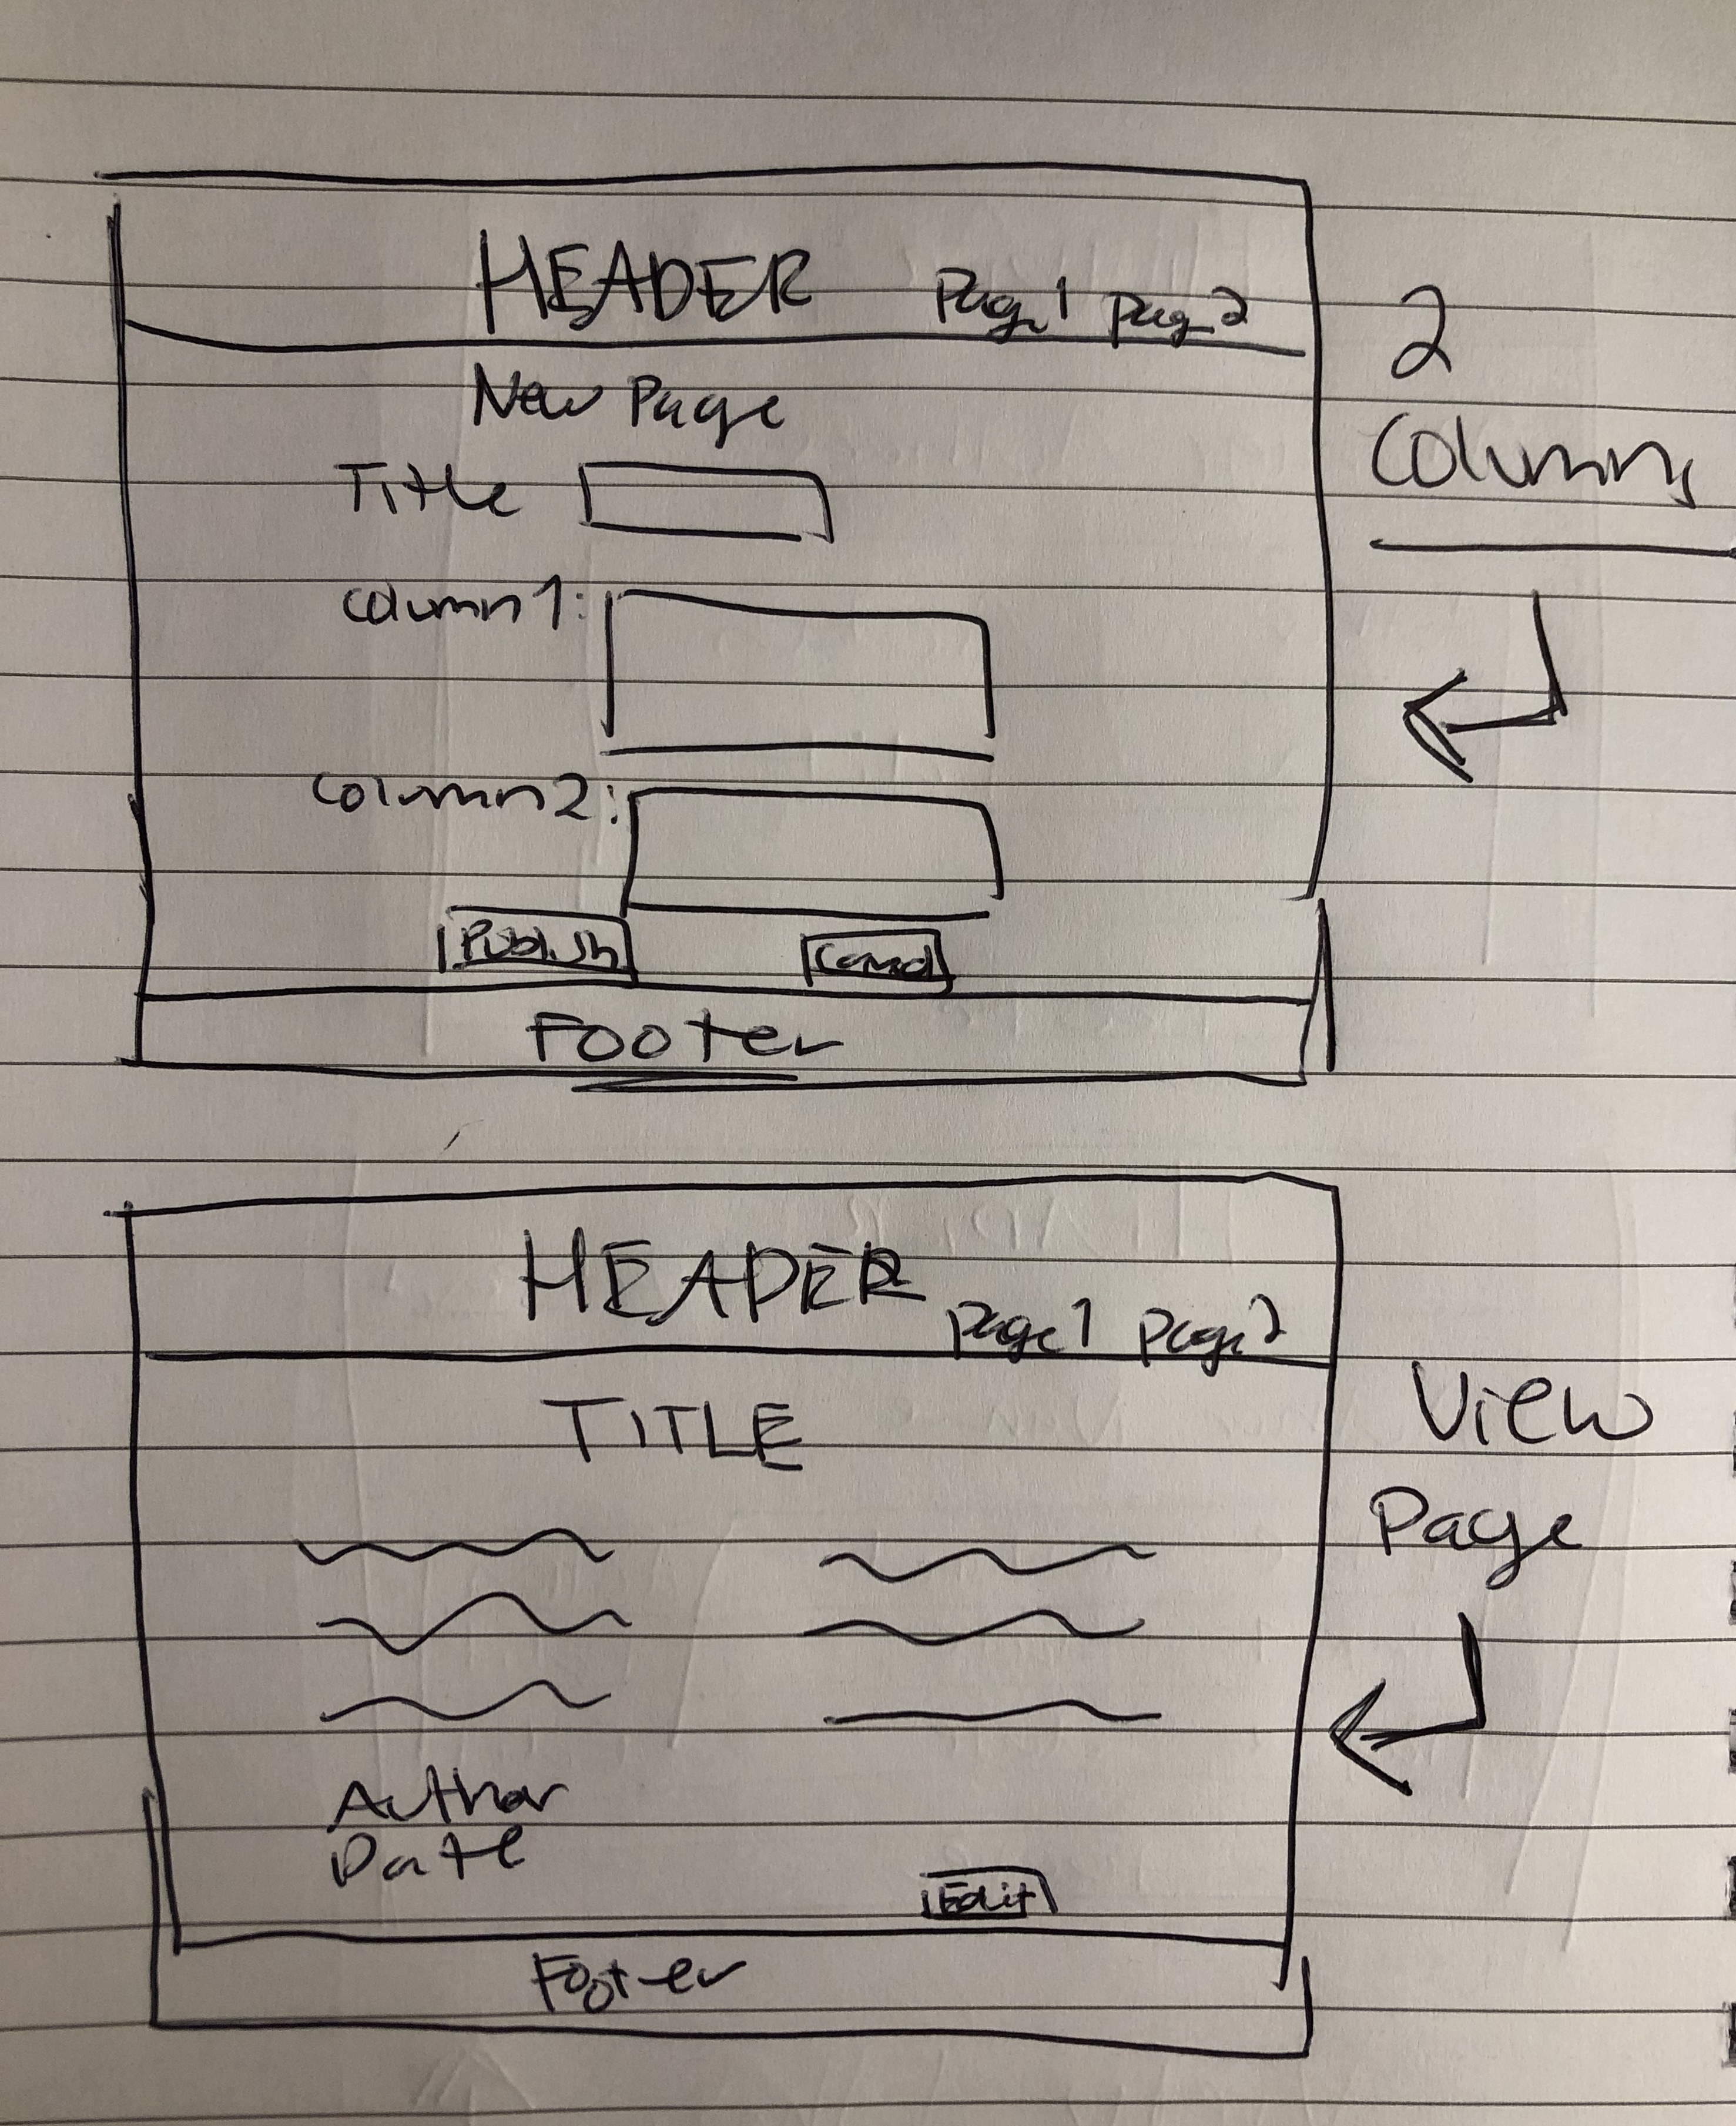 HEADER Page 1 Page 2
New Page
Title
column 1:
column 2:
Publish Cancel
Footer
2
Columns
HEADER Page 1 Page 2
TITLE
Author
Date
Edit
Footer
View
Page